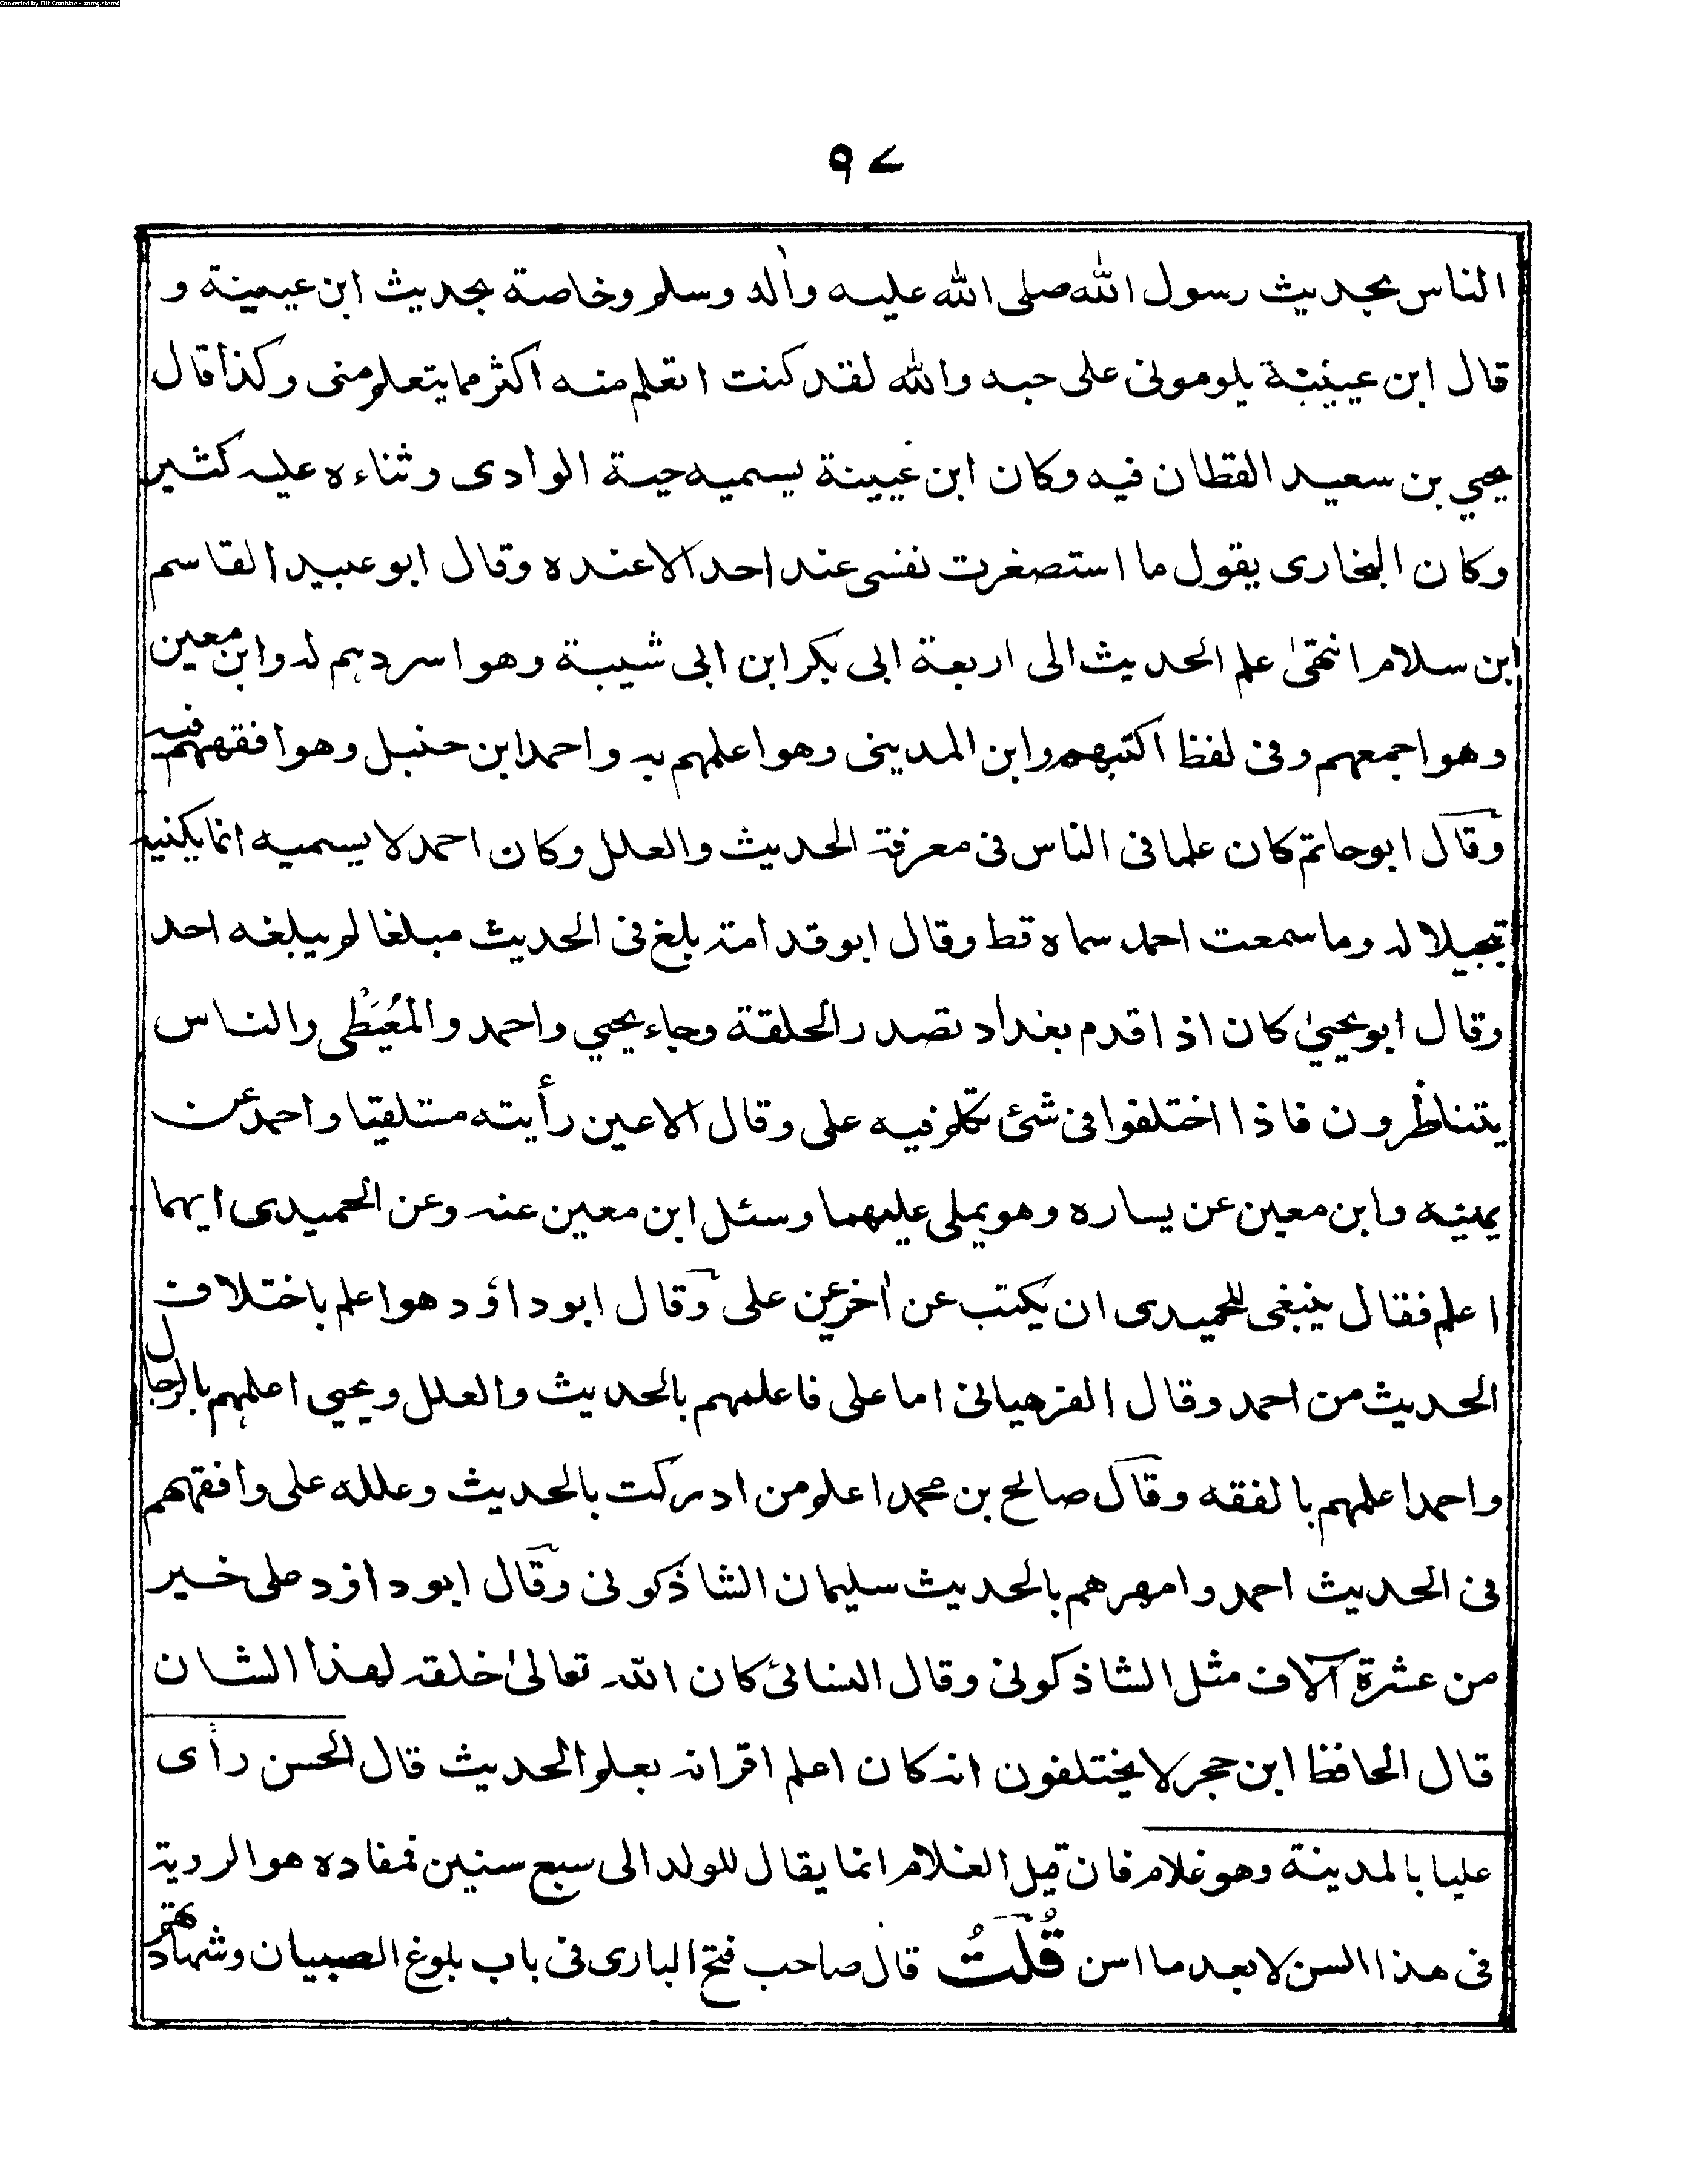 Converted by Tiff Combine - unregistered
٩٧
الناس بحديث رسول الله صلى الله عليه وأله وسلم وخاصة بحديث ابن عيينة و
قال ابن عيينة يلومونى على حبه والله لقد كنت اتعلم منه اكثر مما يتعلم منى وكذا قال
يحيي بن سعيد القطان فيه وكان ابن عيينة يسميه حية الوادى وثناءه عليه كثير
وكان البخارى يقول ما استصغرت نفسى عند احد الا عنده وقال ابو عبيد القاسم
ابن سلام انتهىٰ علم الحديث الى اربعة ابى بكر ابن ابى شيبة وهو اسردهم له وابن معين
وهو اجمعهم وفى لفظ اكتبهم وابن المدينى وهو اعلمهم به واحمد ابن حنبل وهو افقههم فيه
وقال ابو حاتم كان علما فى الناس فى معرفة الحديث والعلل وكان احمد لا يسميه انما يكنيه
تبجيلا له وما سمعت احمد سماه قط وقال ابو قدامة بلغ فى الحديث مبلغا لم يبلغه احد
وقال ابو يحيىٰ كان اذا قدم بغداد تصدر الحلقة وجاء يحيي واحمد والمُعَيْطى والناس
يتناظرون فاذا اختلفوا فى شئ تكلم فيه على وقال الاعين رأيته مستلقيا واحمد عن
يمينه وابن معين عن يساره وهو يملى عليهما وسئل ابن معين عنه وعن الحميدى ايهما
اعلم فقال ينبغى للحميدى ان يكتب عن أخر عن على وقال ابو داؤد هو اعلم باختلاف
الحديث من احمد وقال الفرهيانى اما على فاعلمهم بالحديث والعلل ويحيى اعلمهم بالرجال
واحمد اعلمهم بالفقه وقال صالح بن محمد اعلم من ادركت بالحديث وعلله على وافقههم
فى الحديث احمد وامهرهم بالحديث سليمان الشاذكونى وقال ابو داؤد على خير
من عشرة آلاف مثل الشاذكونى وقال النسائى كان الله تعالىٰ خلقه لهذا الشان
قال الحافظ ابن حجر لا يختلفون انه كان اعلم اقرانه بعلم الحديث قال الحسن رأى
عليا بالمدينة وهو غلام فان قيل الغلام انما يقال للولد الى سبع سنين فمفاده هو الروية
فى هذا السن لا بعد ما اسن قُلتُ قال صاحب فتح البارى فى باب بلوغ الصبيان وشهادتهم